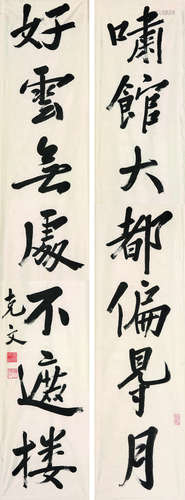 嘯館大都偏㝵月
好雲無處不遮楼
克文